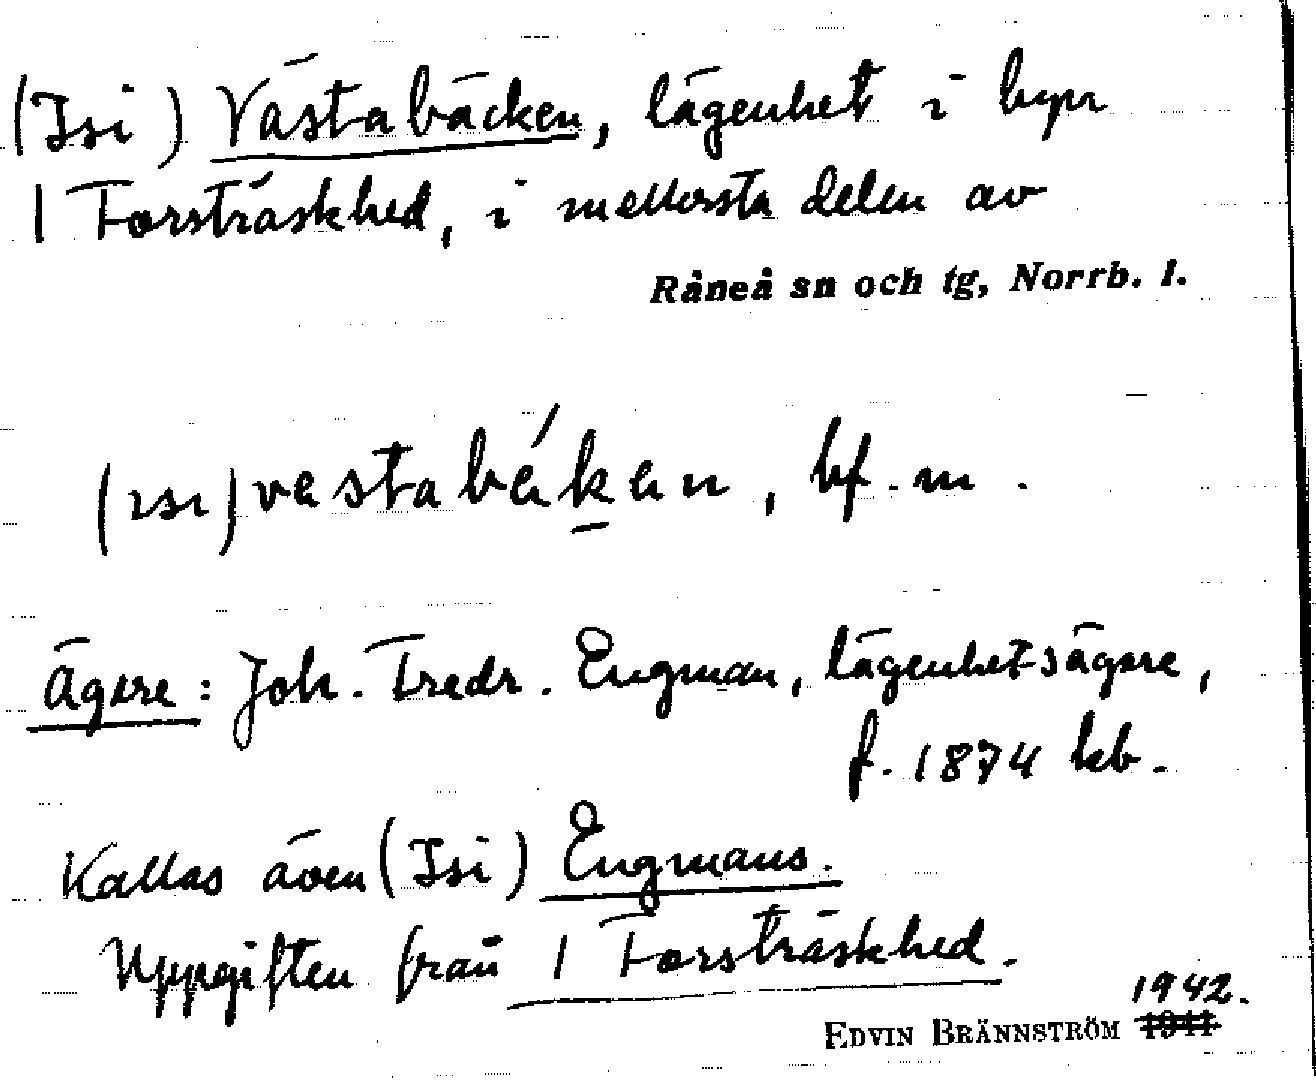 (Isi) Västabäcken, lägenhet i byn
1 Forsträskhed, i mellersta delen av
Råneå sn och tg, Norrb. l.
(ɪsɪ) vestabékan, bf. m.
Ägare: Joh. Fredr. Engman, lägenhetsägare,
f. 1874 kb.
Kallas även (Isi) Engmans.
Uppgiften från 1 Forsträskhed.
1942.
EDVIN BRÄNNSTRÖM 1941